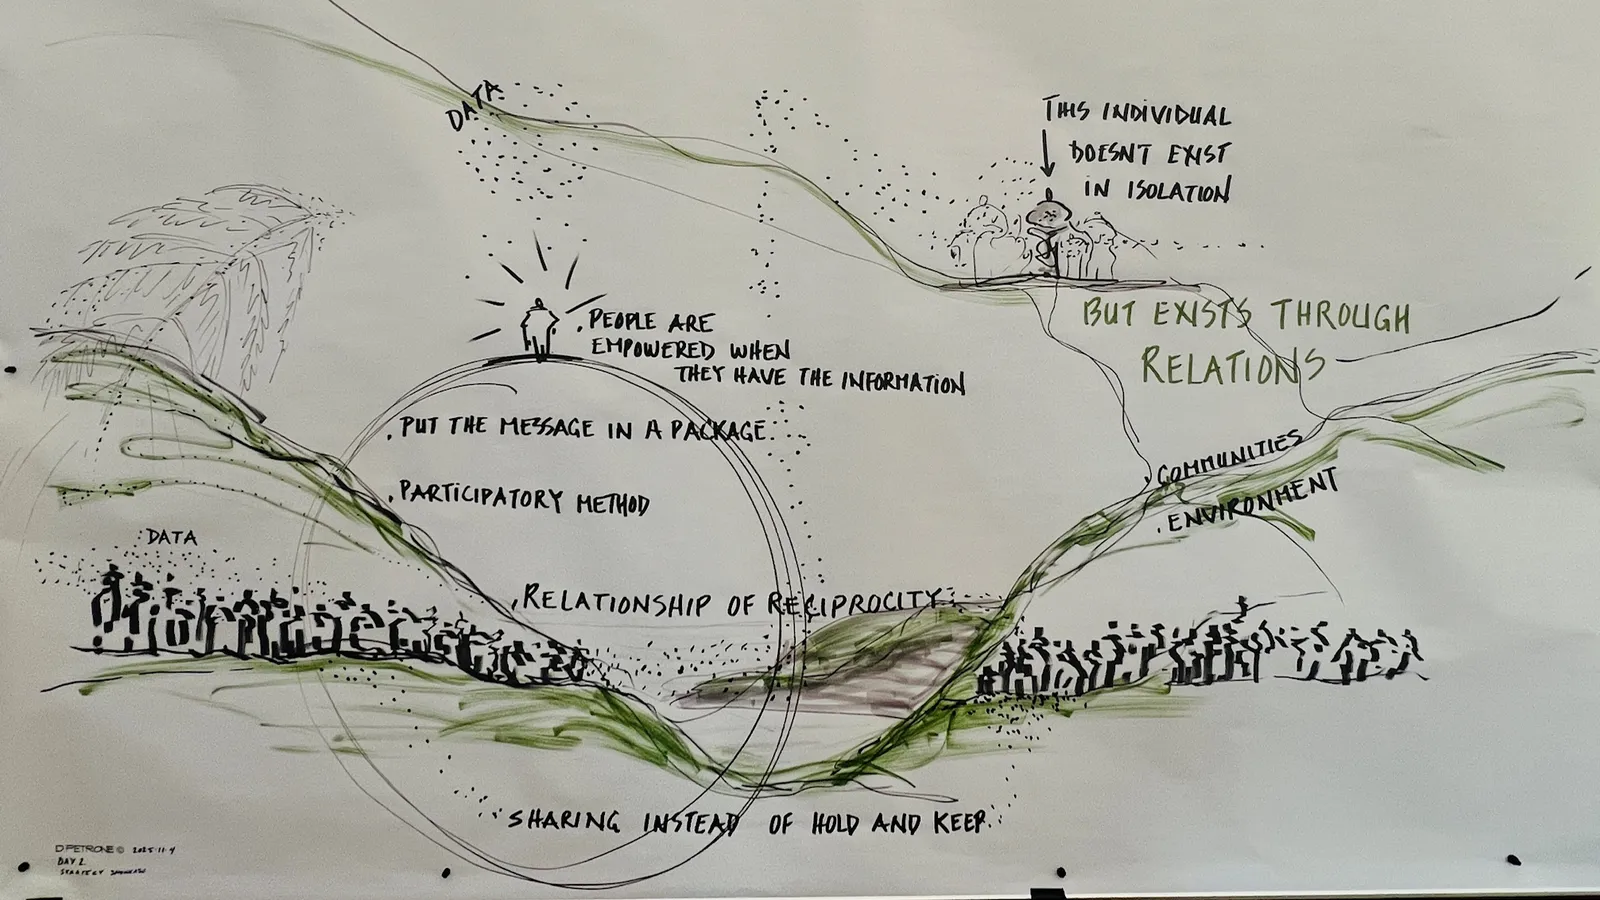 DATA
THIS INDIVIDUAL
DOESN'T EXIST
IN ISOLATION
BUT EXISTS THROUGH
RELATIONS
. PEOPLE ARE
EMPOWERED WHEN
THEY HAVE THE INFORMATION
. PUT THE MESSAGE IN A PACKAGE
. PARTICIPATORY METHOD
. COMMUNITIES
. ENVIRONMENT
DATA
. RELATIONSHIP OF RECIPROCITY
SHARING INSTEAD OF HOLD AND KEEP
D.PETRONE © 2025.11.4
DAY 2
STRATEGY